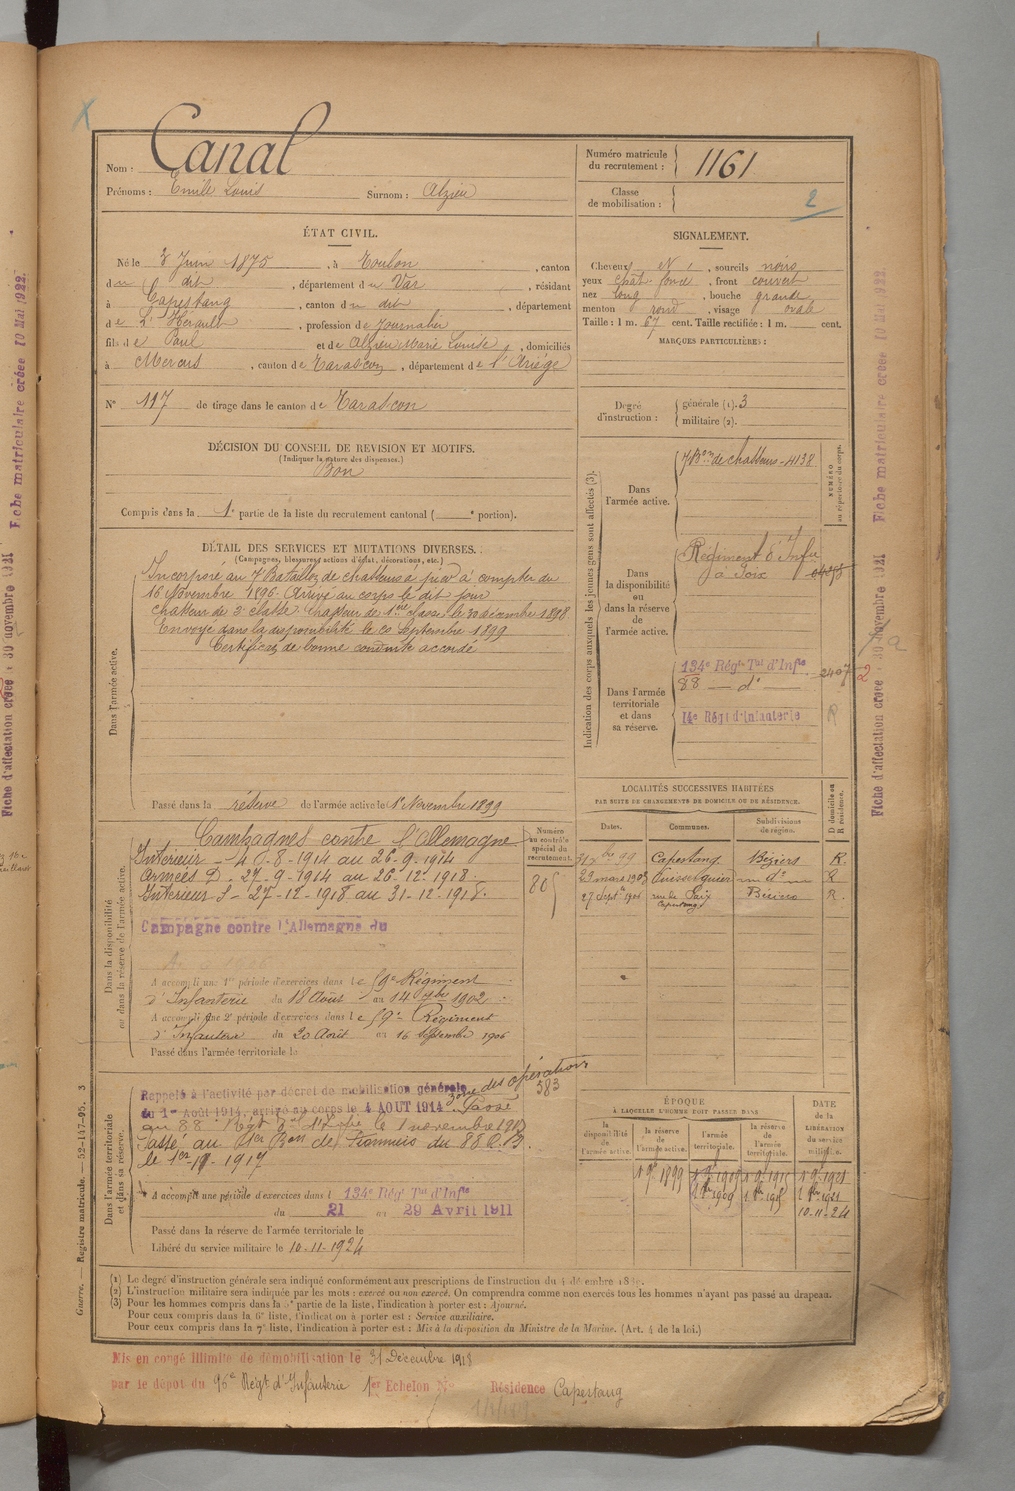 Nom : Canal
Prénoms : Emile Louis Surnom : Alzieu
Numéro matricule
du recrutement : 1161
Classe
de mobilisation : 2
ÉTAT CIVIL.
Né le 3 Juin 1875, à Toulon, canton
du dit, département du Var, résidant
à Capestang, canton du dit, département
de L'Hérault, profession de Journalier
fils de Paul et de Alzieu Marie Louise, domiciliés
à Mercus, canton de Tarascon, département de l'Ariège
N° 117 de tirage dans le canton de Tarascon
SIGNALEMENT.
Cheveux N, sourcils noirs
yeux chat. foncé, front couvert
nez long, bouche grande
menton rond, visage ovale
Taille : 1 m. 67 cent. Taille rectifiée : 1 m. cent.
MARQUES PARTICULIÈRES :
Degré
d'instruction :
générale (1). 3
militaire (2).
DÉCISION DU CONSEIL DE REVISION ET MOTIFS.
(Indiquer la nature des dispenses.)
Bon
Compris dans la 1e partie de la liste du recrutement cantonal ( e portion).
DÉTAIL DES SERVICES ET MUTATIONS DIVERSES.
(Campagnes, blessures, actions d'éclat, décorations, etc.)
Dans l'armée active.
Incorporé au 7e Bataillon de chasseurs à pied à compter du
16 Novembre 1896. Arrivé au corps le dit jour
chasseur de 2e classe. Chasseur de 1ère classe le 30 décembre 1898
Envoyé dans la disponibilité le 20 Septembre 1899
Certificat de bonne conduite accordé
Passé dans la réserve de l'armée active le 1er Novembre 1899
Indication des corps auxquels les jeunes gens sont affectés (3).
NUMÉRO
au répertoire du corps.
Dans
l'armée active.
7e Bon de chasseurs - 4138
Dans
la disponibilité
ou
dans la réserve
de
l'armée active.
Régiment d'Infie
à Foix
Dans l'armée
territoriale
et dans
sa réserve.
134e Régt Tal d'Infie 2407
88 — do —
14e Régt d'Infanterie
R
LOCALITÉS SUCCESSIVES HABITÉES
PAR SUITE DE CHANGEMENTS DE DOMICILE OU DE RÉSIDENCE.
Dates. Communes. Subdivisions
de région. D domicile ou
R résidence.
31 Xbre 99 Capestang Béziers R.
29 mars 1903 Puisserguier do R
27 Sept 1906 rue de Paix
Capestang R.
Dans la disponibilité
ou dans la réserve de l'armée active.
Numéro
au contrôle
spécial du
recrutement.
805
Campagnes contre l'Allemagne
Intérieur - 4-8-1914 au 26-9-1914
Armées D. 27-9-1914 au 26-12-1918
Intérieur S - 27-12-1918 au 31-12-1918.
Campagne contre l'Allemagne du
A accompli une 1re période d'exercices dans le 59e Régiment
d'Infanterie du 18 Août au 14 7bre 1902
A accompli une 2e période d'exercices dans le 59e Régiment
d'Infanterie du 20 Août au 16 Septembre 1906
Passé dans l'armée territoriale le
Dans l'armée territoriale
et dans sa réserve.
Rappelé à l'activité par décret de mobilisation générale
du 1er Août 1914, arrivé au corps le 4 AOUT 1914. Passé
zone des opérations
583
au 88e Régt Tal d'Infie le 1 novembre 1915
Passé au 1er Bon de Pionniers du 88e
le 1er-11-1917
A accompli une période d'exercices dans l 134e Régt Tal d'Infie
du 21 au 29 Avril 1911
Passé dans la réserve de l'armée territoriale le
Libéré du service militaire le 10-11-1924
ÉPOQUE
À LAQUELLE L'HOMME DOIT PASSER DANS
DATE
de la
LIBÉRATION
du service
militaire.
la
disponibilité
de
l'armée active. la réserve
de
l'armée active. l'armée
territoriale. la
réserve de
l'armée
territoriale.
1 9bre 1899 1 9 1909 1 9 1915 1 9 1921
1 8bre 1909 1 8bre 1915 1 8bre 1921
10-11-24
(1) Le degré d'instruction générale sera indiqué conformément aux prescriptions de l'instruction du 4 décembre 1889.
(2) L'instruction militaire sera indiquée par les mots : exercé ou non exercé. On comprendra comme non exercés tous les hommes n'ayant pas passé au drapeau.
(3) Pour les hommes compris dans la 5e partie de la liste, l'indication à porter est : Ajourné.
Pour ceux compris dans la 6e liste, l'indication à porter est : Service auxiliaire.
Pour ceux compris dans la 7e liste, l'indication à porter est : Mis à la disposition du Ministre de la Marine. (Art. 4 de la loi.)
Mis en congé illimité de démobilisation le 31 Décembre 1918
par le dépôt du 96e Régt d'Infanterie 1er Echelon N° Résidence Capestang
Guerre. — Registre matricule. — 52-147-95. 3
Fiche d'affectation créée : 30 novembre 1921 Fiche matriculaire créée 10 Mai 1922.
Fiche d'affectation créée : 30 novembre 1921 Fiche matriculaire créée 10 Mai 1922.